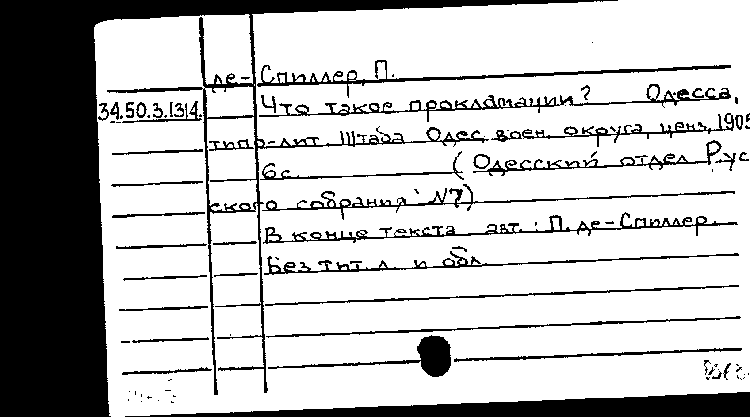 де-Спиллер, П.
34.50.3.1314. Что такое прокламации? Одесса,
типо-лит. Штаба Одес. воен. округа, ценз. 1905
6с. (Одесский отдел Рус
ского собрания. №7)
В конце текста авт.: П. де-Спиллер.
Без тит. л. и обл.